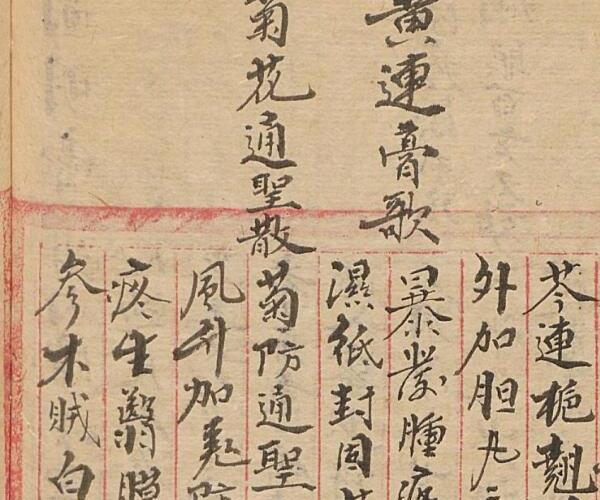 芩連梔翹
外加胆九
暴發腫疼
黃連膏歌
濕紙封固
菊花通聖散
菊防通聖
風升加羗防
疼生翳膜
參木賊白